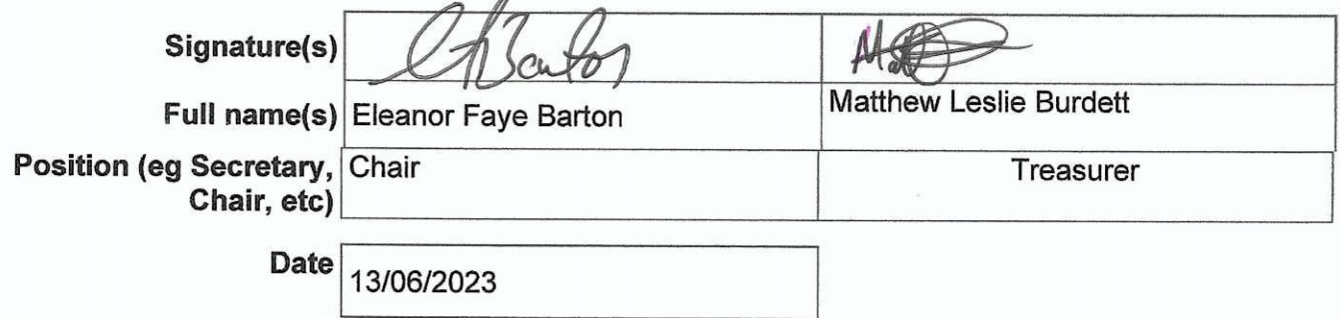 Signature(s)
Full name(s) Eleanor Faye Barton Matthew Leslie Burdett
Position (eg Secretary, Chair Treasurer
Chair, etc)
Date 13/06/2023